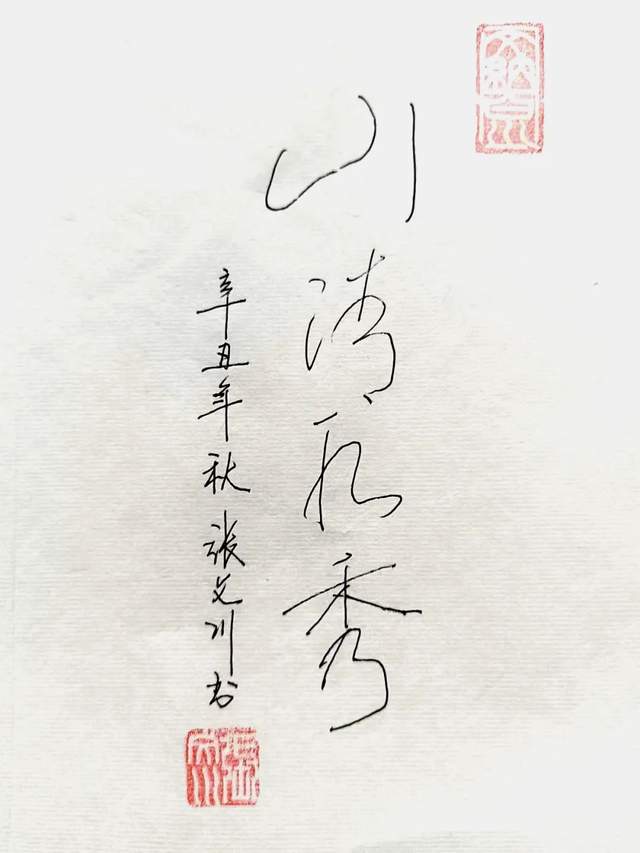 山清水秀
辛丑年秋 张文川书